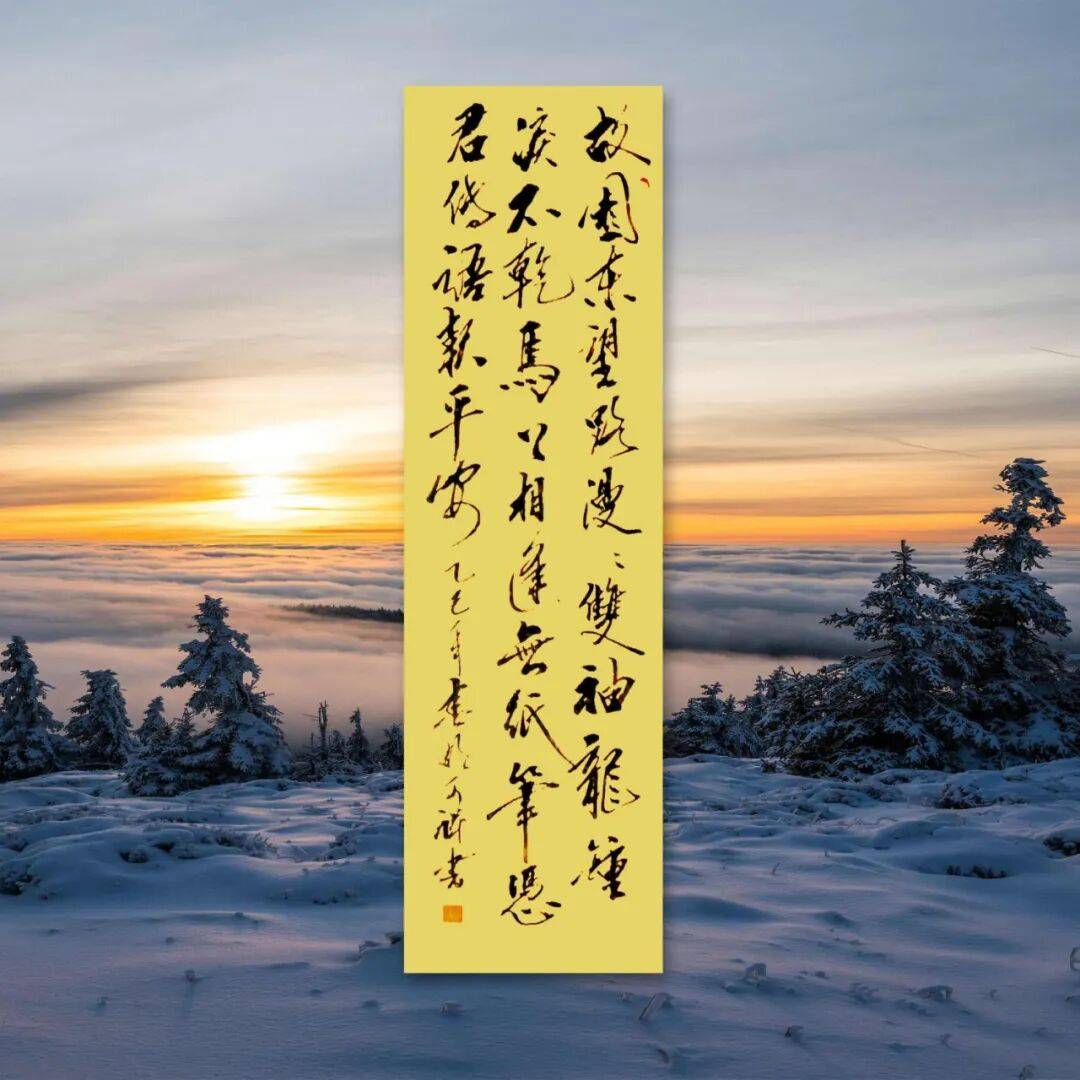 故園東望路漫〻雙袖龍鍾
淚不乾馬上相逢無紙筆憑
君傳語報平安乙巳年書